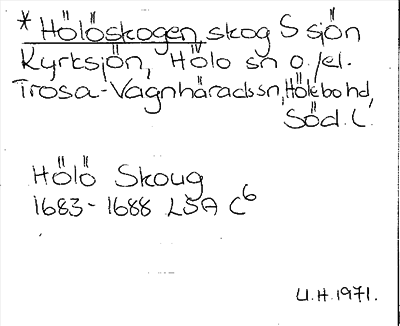 *Hölöskogen, skog S sjön
Kyrksjön, Hölö sn o./el.
Trosa-Vagnhärads sn, Hölebo hd,
Söd. l.
Hölö Skoug
1683-1688 LSA C6
U.H. 1971.